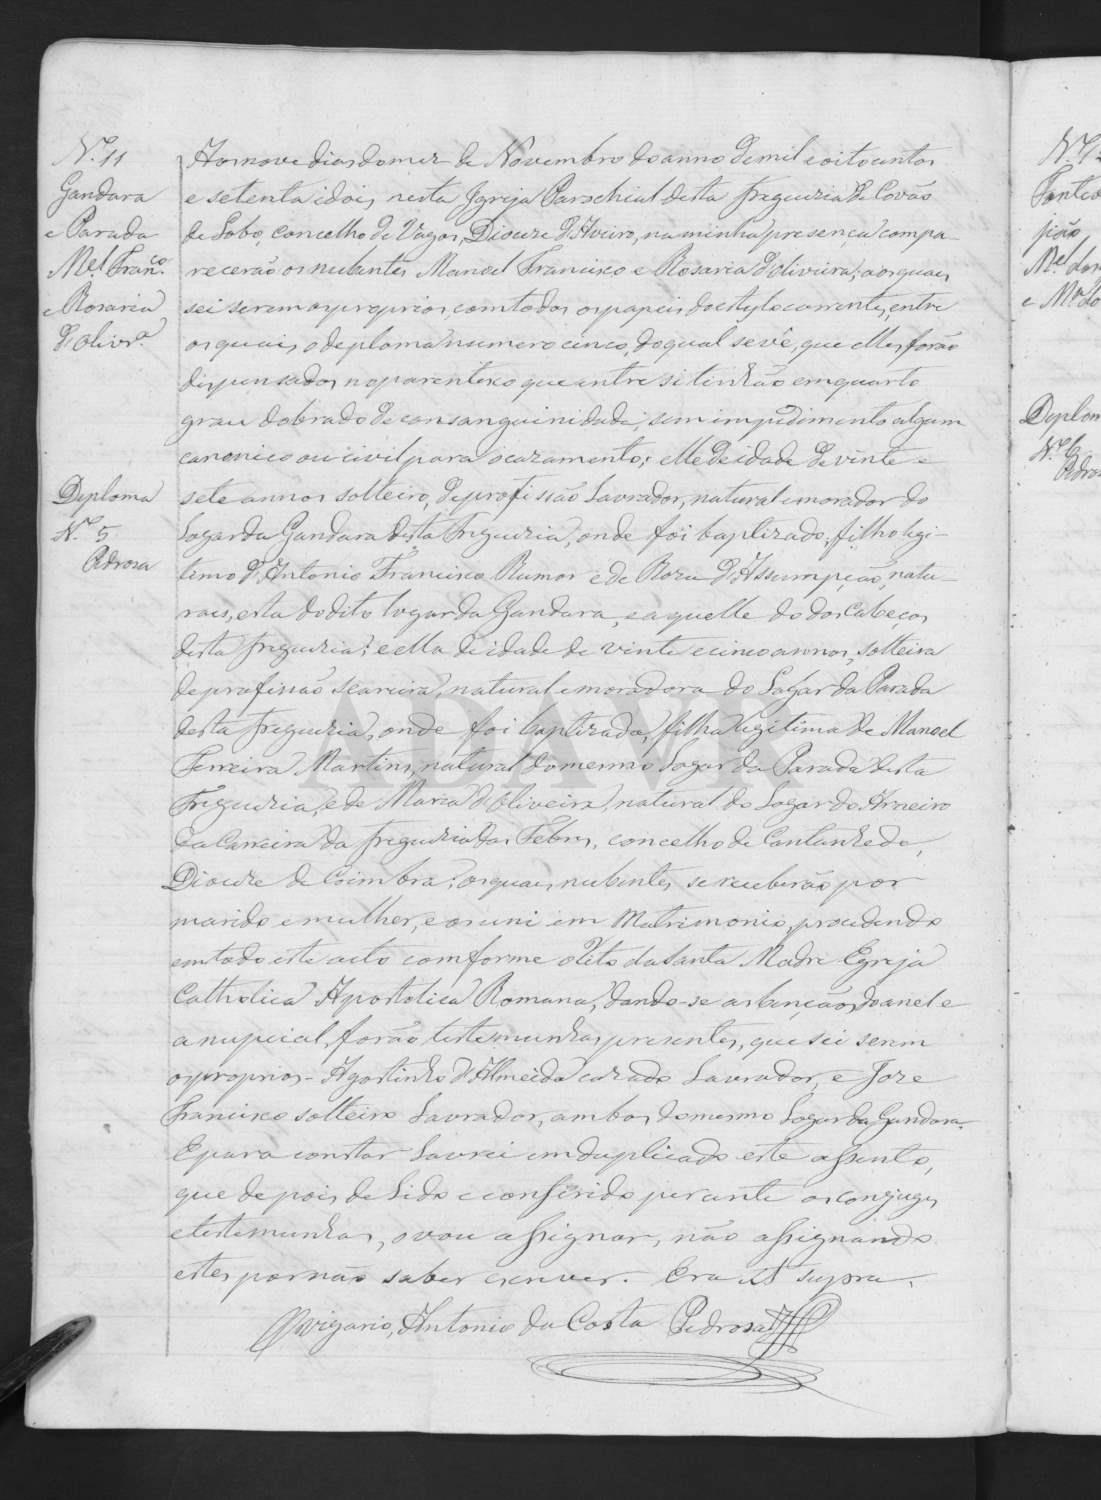 N.º 11
Gandara
e Parada
Mel. Franco.
e Rosaria
d'olivra.
Deploma
N.º 5
Pedrosa
Aos nove dias do mez de Novembro do anno de mil e oitocentos
e setenta e dois, nesta Igreja Parochial desta freguezia de Covão
de Lobo, concelho de Vagos, Diocese d'Aveiro, na minha presença compa-
recerão os nubentes Manoel Francisco e Rosaria d'oliveira, aos quaes
sei serem os proprios, com todos os papeis do estylo correntes, entre
os quais, o deploma numero cinco, do qual se vê, que elles forão
dispensados no parentesco que entre si tinhão em quarto
grau dobrado de consanguinidade, sem impedimento algum
canonico ou civil para o cazamento; elle de idade de vinte e
sete annos solteiro, de profissão Lavrador, natural e morador do
Lugar da Gandara desta freguezia, onde foi baptizado, filho legi-
timo d'Antonio Francisco Rumor e de Roza d'Assumpção, natu-
raes, esta do dito lugar da Gandara, e aquelle do dos Cabecos
desta freguezia; e ella de idade de vinte e cinco annos, solteira
de profissão seareira, natural e moradora do Lugar da Parada
desta freguezia, onde foi baptizada, filha legitima de Manoel
Ferreira Martins, natural do mesmo Lugar da Parada desta
Freguezia, e de Maria d'Oliveira, natural do Lugar do Arneiro
da Carreira da freguezia das Febres, concelho de Cantanhede,
Diocese de Coimbra; os quaes nubentes se receberão por
marido e mulher, e os uni em Matrimonio, procedendo
em todo este acto comforme o Rito da Santa Madre Egreja
Catholica Apostolica Romana, dando-se as bençãos do anel e
a nupcial, forão testemunhas presentes, que sei serem
os proprios - Agostinho d'Almeida cazado Lavrador, e Joze
Francisco solteiro Lavrador, ambos do mesmo Lugar da Gandara.
E para constar Lavrei em duplicado este assento,
que depois de Lido e conferido perante os conjuges
e testemunhas, o vou assignar, não assignando
estes por não saber escrever. Era ut supra.
O vigario, Antonio da Costa Pedrosa
ADAVR
N.º 12
Mel. dos
Deplom
N.º 6
Pedros